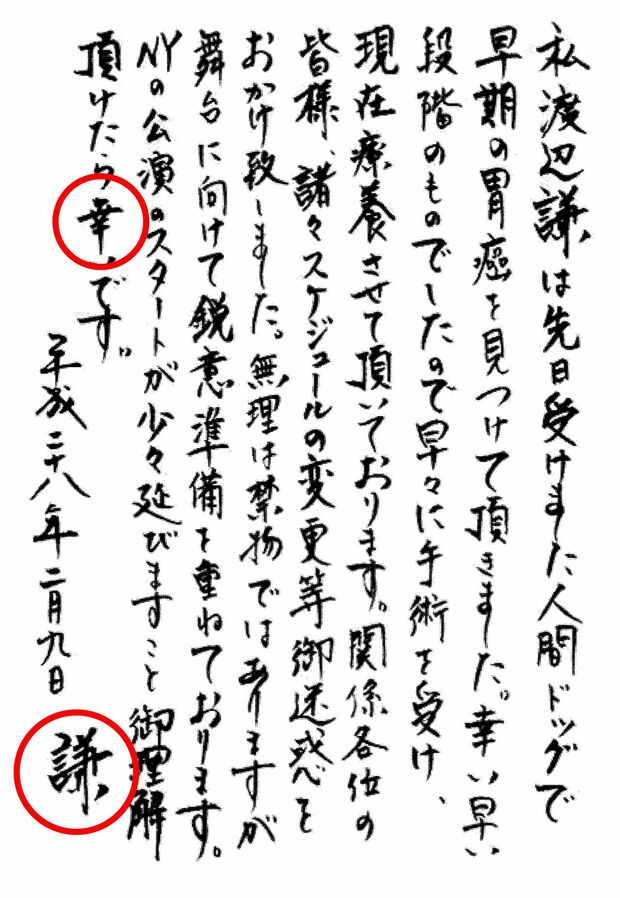 私渡辺謙は先日受けました人間ドックで
早期の胃癌を見つけて頂きました。幸い早い
段階のものでしたので早々に手術を受け、
現在療養させて頂いております。関係各位の
皆様、諸々スケジュールの変更等御迷惑を
おかけ致しました。無理は禁物ではありますが
舞台に向けて鋭意準備を重ねております。
NYの公演のスタートが少々延びますこと御理解
頂けたら幸いです。
平成二十八年二月九日
謙